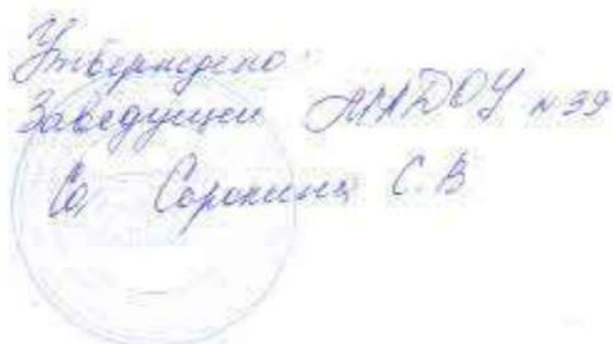 Утверждено:
Заведующей МАДОУ №39
Сорокина С.В